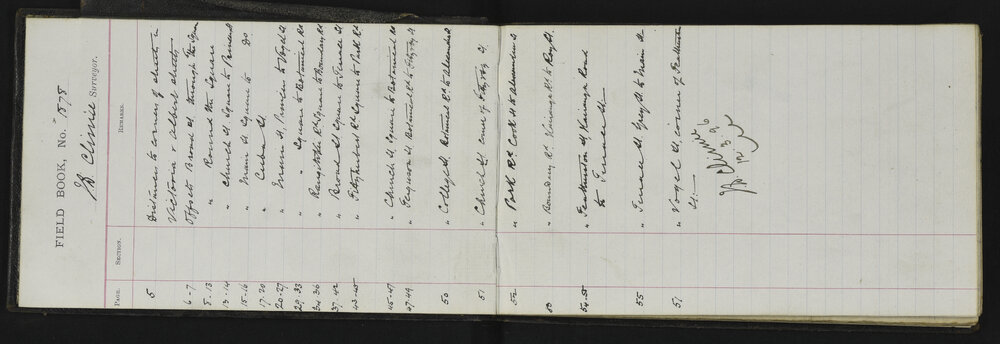 FIELD BOOK, No. 1578
J. B. Climie Surveyor.
PAGE. SECTION. REMARKS.
5 Distances to corners of streets in
Victoria & Albert streets
6-7 Offsets Broad St through The Square
8-13 " Round the Square
13-14 " Church St Square to Princess
15-16 " Main St Square to do
17-20 " Cuba St
20-27 " Main St, Princess to Vogel St
29-33 " " Square to Botanical Rd
34-36 " Rangitikei Rd Square to Boundary Rd
37-42 " Broad St Square to Terrace St
43-45 " Fitzherbert Rd Square to Park Rd
45-47 " Church St, Square to Botanical Rd
47-49 " Ferguson St, Botanical Rd to Fitzroy St
50 " College St, Botanical Rd to Alexandra
51 " Church St corner of Fitzroy St
52 " Park Rd Cook St to Alexandra St
53 " Boundary Rd, Kairanga Rd to Roy St.
54-55 " Featherston St, Kairanga Road
to Terrace St
55 " Terrace St Grey St to Main St
57 " Vogel St, corner of Featherston
St.
J. B. Climie
12 3 96